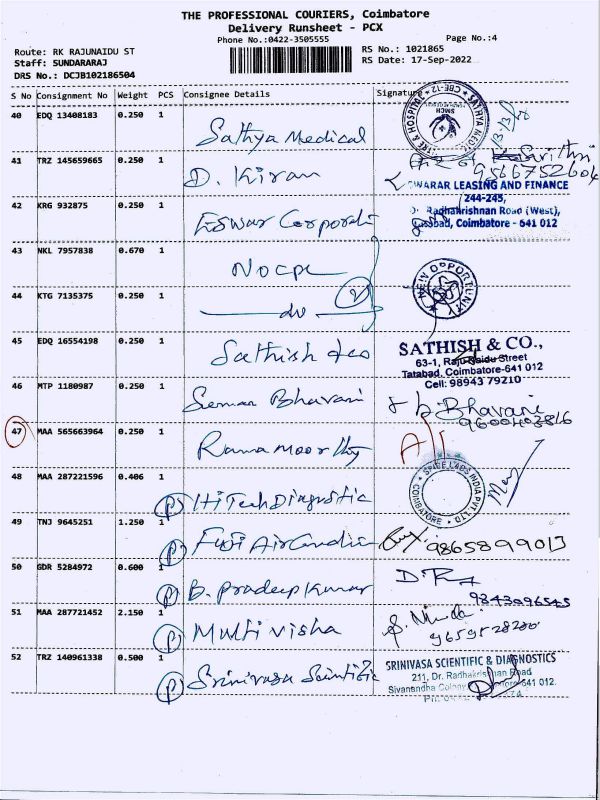 THE PROFESSIONAL COURIERS, Coimbatore
Delivery Runsheet - PCX
Phone No.:0422-3505555
Page No.:4
Route: RK RAJUNAIDU ST
RS No.: 1021865
Staff: SUNDARARAJ
RS Date: 17-Sep-2022
DRS No.: DCJB102186504
S No Consignment No Weight PCS Consignee Details Signature
40 EDQ 13408183 0.250 1 Sathya Medical
41 TRZ 145659665 0.250 1 D. Kiran 9566752604
42 KRG 932875 0.250 1 Eswar Corporati
WARAR LEASING AND FINANCE
244-245,
Radhakrishnan Road (West),
Coimbatore - 641 012
43 NKL 7957838 0.670 1 Nocpl
NEW OPPORTUNITY
44 KTG 7135375 0.250 1 do
45 EDQ 16554198 0.250 1 Sathish & co
SATHISH & CO.,
63-1, Raju Naidu Street
Tatabad, Coimbatore-641 012
Cell: 98943 79210
46 MTP 1180987 0.250 1 Semar Bhavani Bhavani
9600403816
47 MAA 565663964 0.250 1 Ramamoorthy
48 MAA 287221596 0.406 1 (P) HiTech Diagnostic
SPIRE LABS INDIA PVT LTD
COIMBATORE
49 TNJ 9645251 1.250 1 (P) Fuji Air Condition 9865899013
50 GDR 5284972 0.600 1 (P) B. Pradeep Kumar
9843096545
51 MAA 287721452 2.150 1 (P) Multi visha
9659528280
52 TRZ 140961338 0.500 1 (P) Srinivasa Scientific
SRINIVASA SCIENTIFIC & DIAGNOSTICS
211, Dr. Radhakrishnan Road
Sivanandha Colony, 641 012.